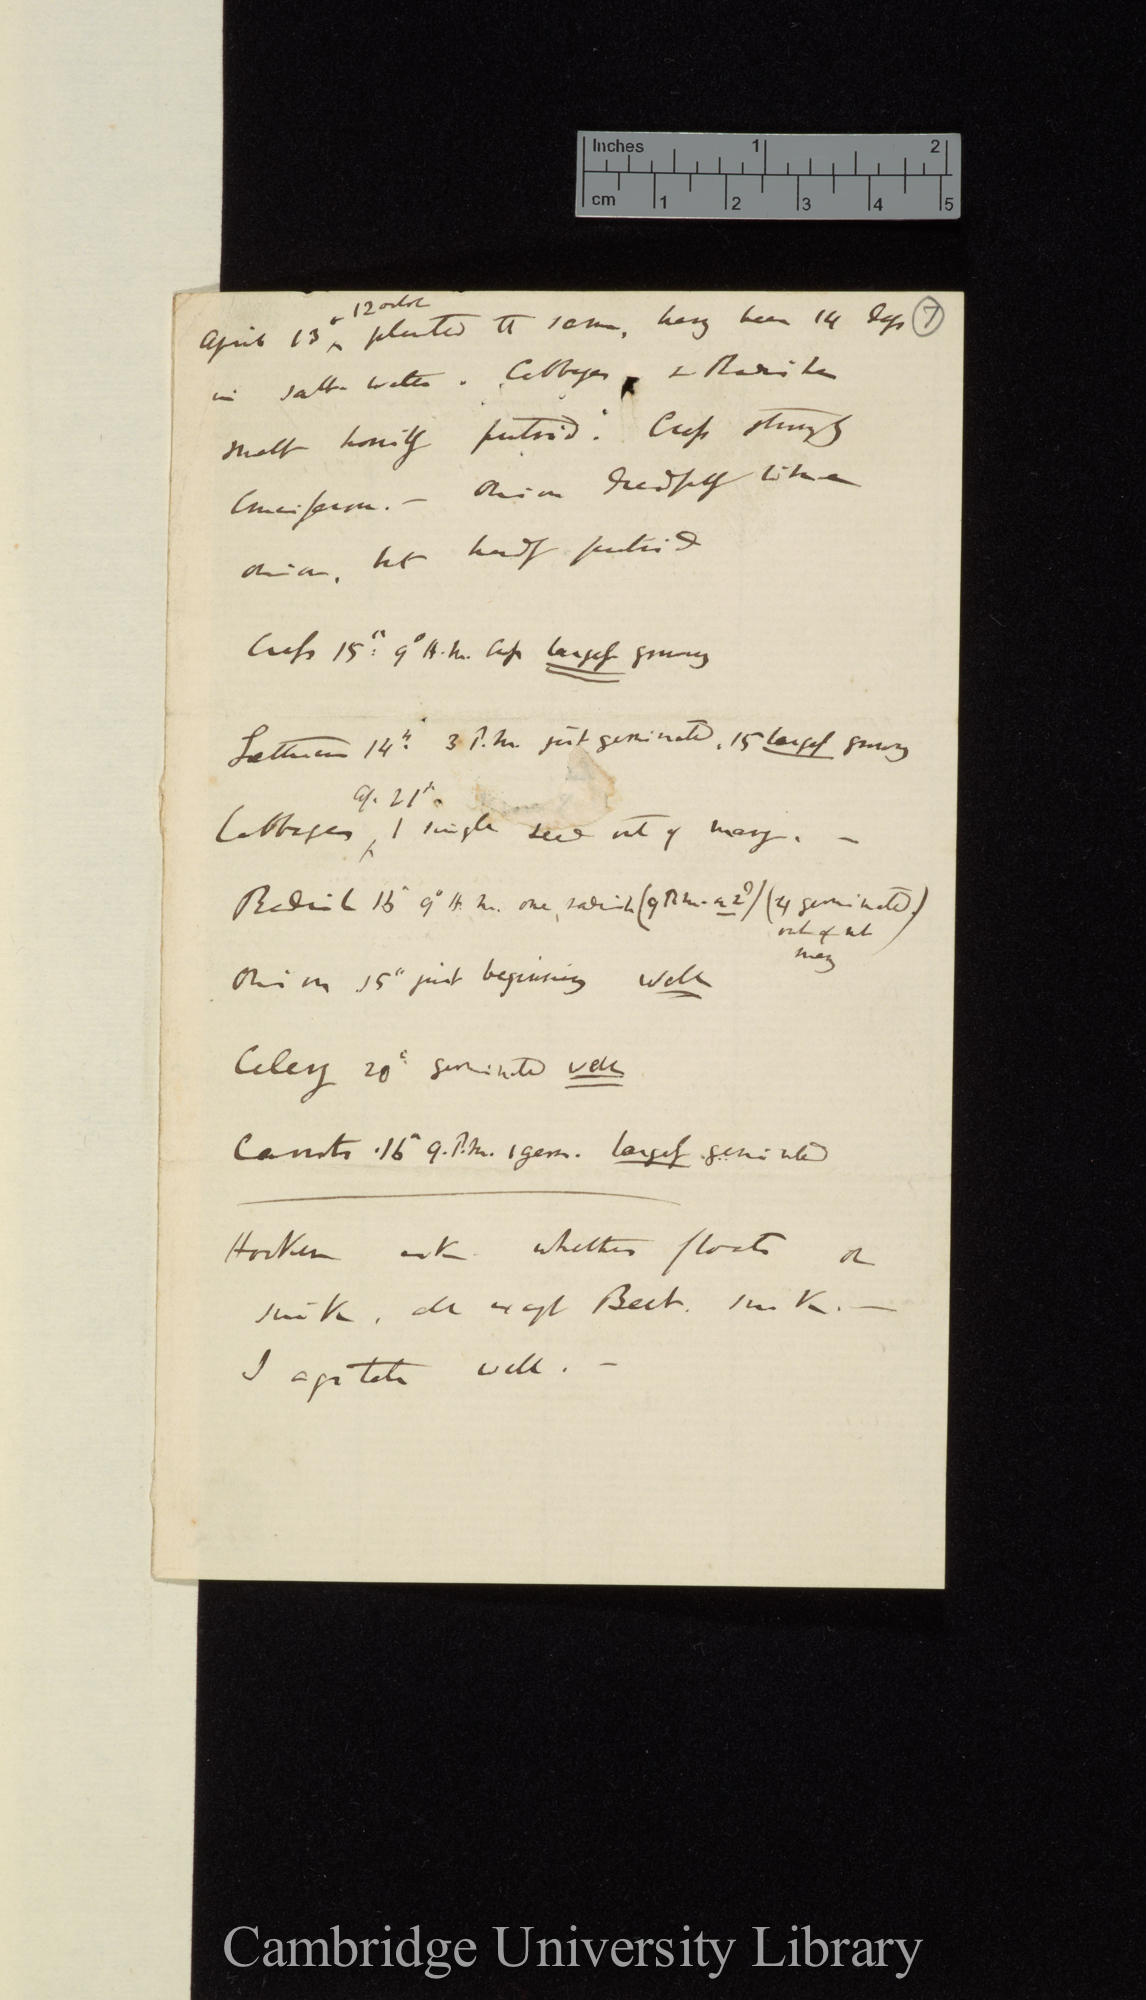 Inches 1 2
cm 1 2 3 4 5
12 oclock
April 13th planted the same, having been 14 days 7
in salt water. Cabbages & Radishes
smelt horribly putrid. Cress strongly
Cruciferous. — Onion dreadfully like an
onion, but hardly putrid
Cress 15th 9o A.m. Cress largely growing
Lettuces 14th 3 P.m. just germinated, 15 largely growing
Ap. 21st.
Cabbages 1 single seed out of many. —
Radish 16th 9o A.m. one radish (9 P.m. a 2d) (4 germinated)
out of not
many
Onion 15th just beginning well
Celery 20th germinated well
Carrots 16th 9. P.m. 1 germ. largely germinated
Hooker ask whether floats or
sink, all except Beet. sink. —
I agitate well. —
Cambridge University Library